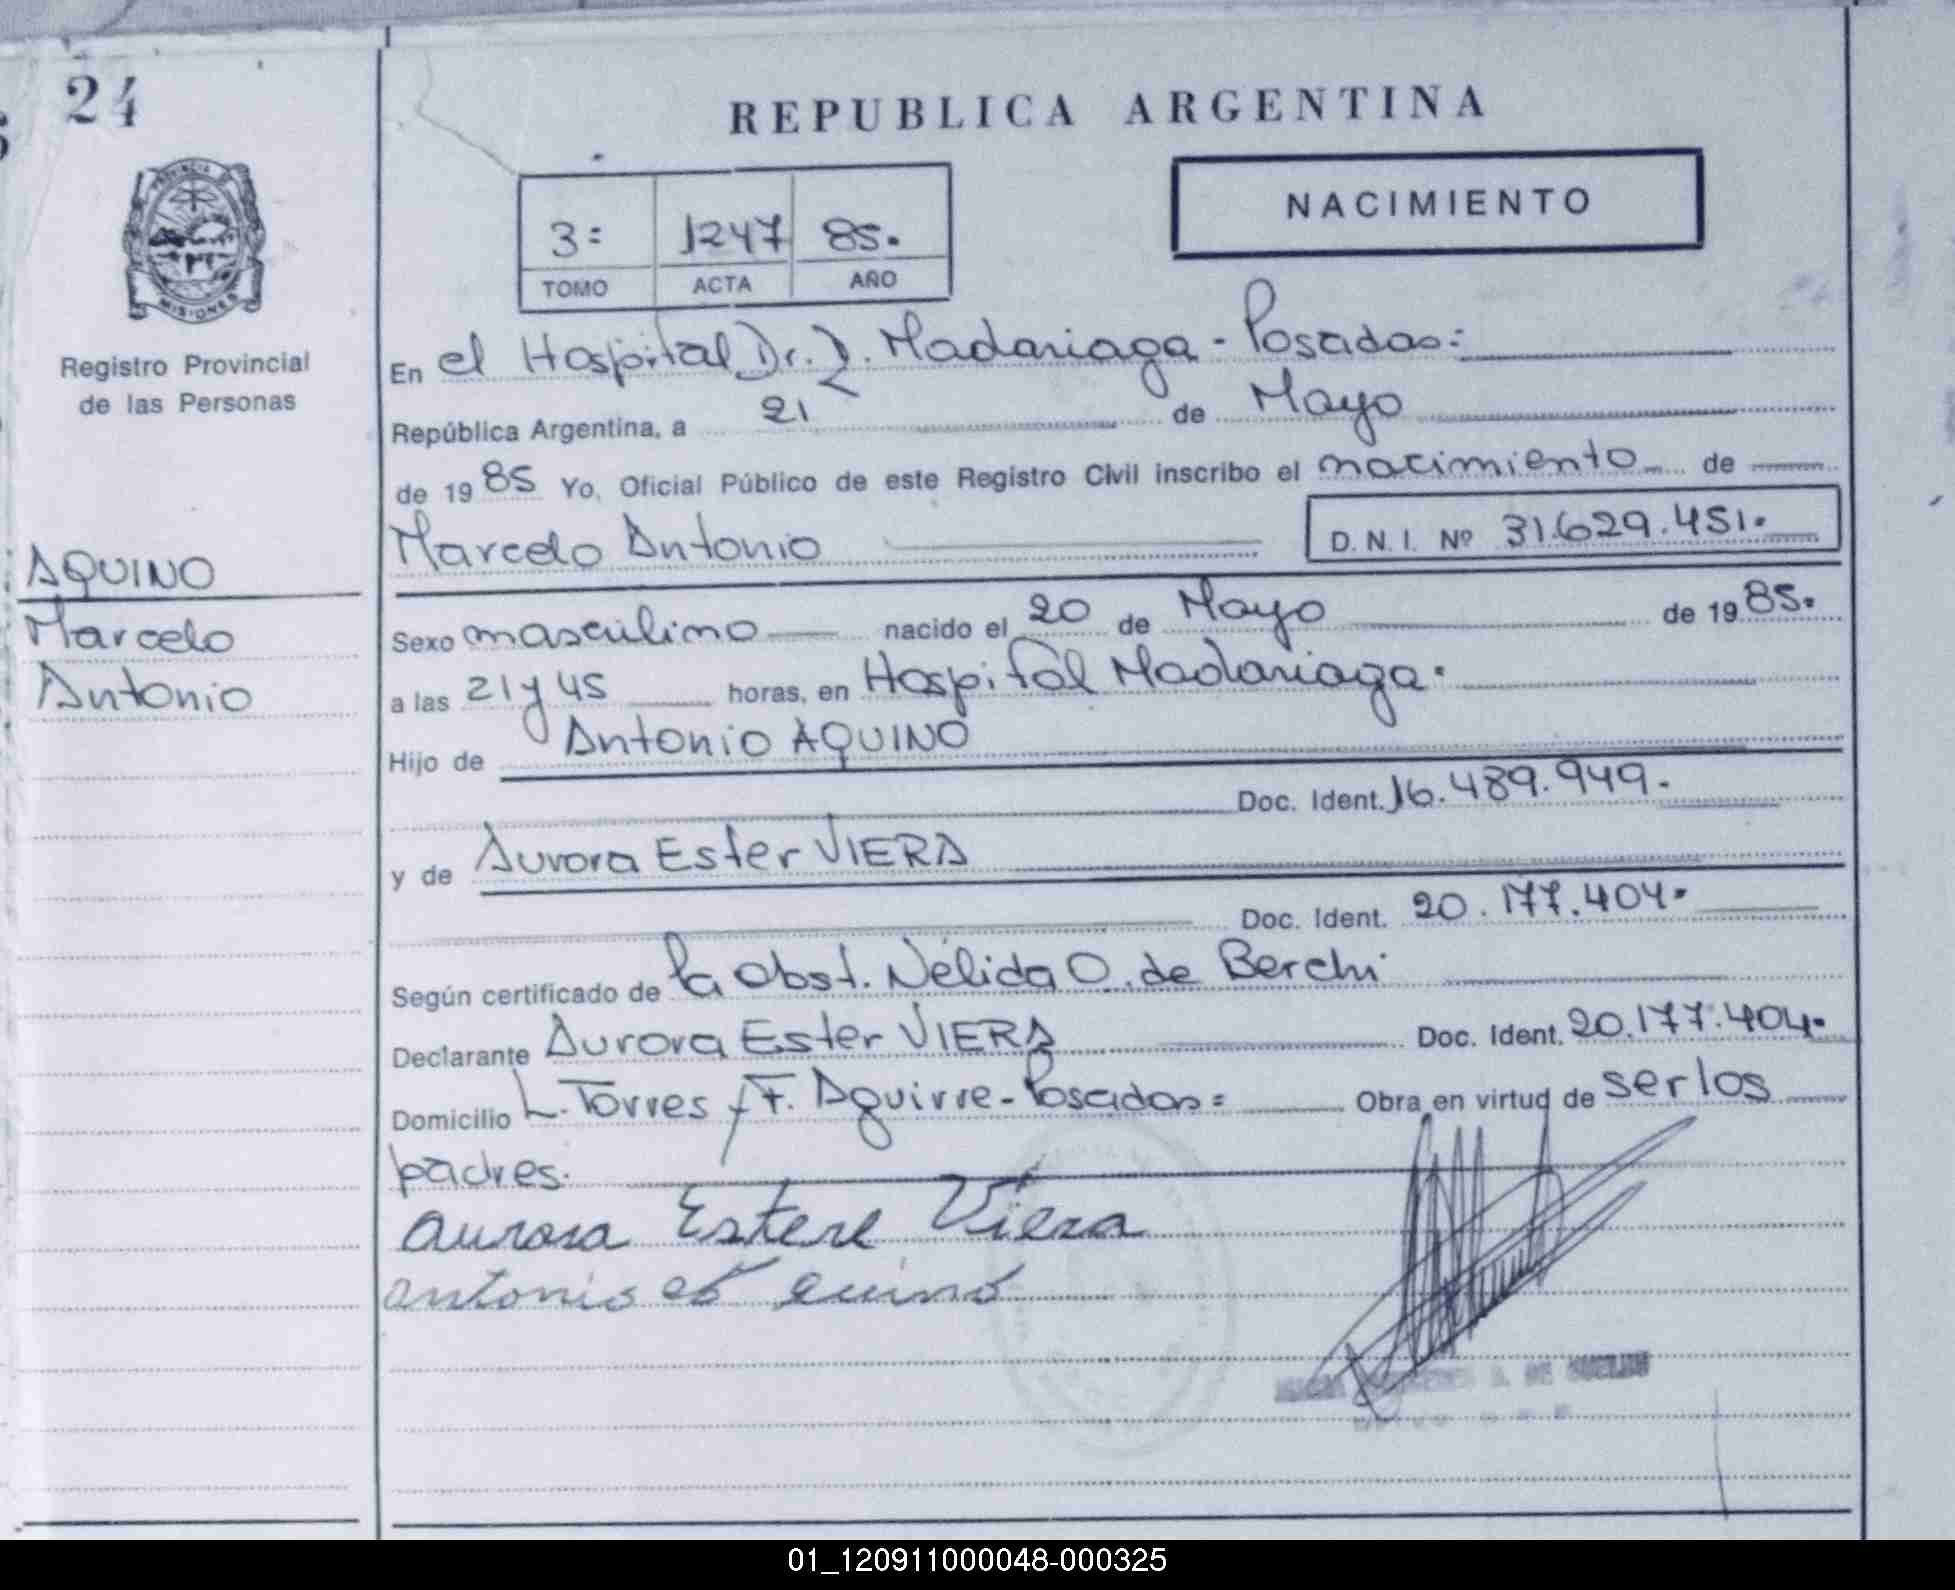 24
REPUBLICA ARGENTINA
NACIMIENTO
3= 1247 85.
TOMO ACTA AÑO
PROVINCIA
MISIONES
Registro Provincial
de las Personas
AQUINO
Marcelo
Antonio
En el Hospital Dr. R. Madariaga - Posadas=
República Argentina, a 21 de Mayo
de 1985 Yo, Oficial Público de este Registro Civil inscribo el nacimiento de
Marcelo Antonio D. N. I. Nº 31.629.451.
Sexo masculino nacido el 20 de Mayo de 1985.
a las 21 y 45 horas, en Hospital Madariaga.
Hijo de Antonio AQUINO
Doc. Ident. 16.489.949.
y de Aurora Ester VIERA
Doc. Ident. 20.177.404.
Según certificado de la Obst. Nélida O. de Berchi
Declarante Aurora Ester VIERA Doc. Ident. 20.177.404.
Domicilio L. Torres y F. Aguirre - Posadas= Obra en virtud de ser los
padres.
aurora Estere Viera
antonio
01_120911000048-000325